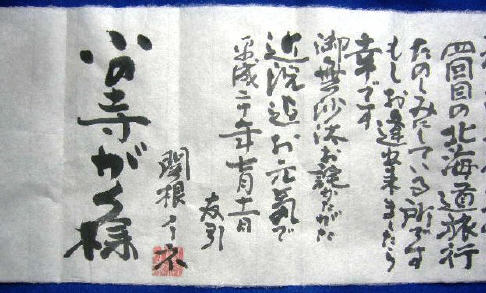 四回目の北海道旅行
たのしみにしている所です
もしお逢い出来ましたら
幸です
御無沙汰お詫かたがた
近況迄お元気で
平成二十年七月十一日
友引
関根イネ
小寺がく様